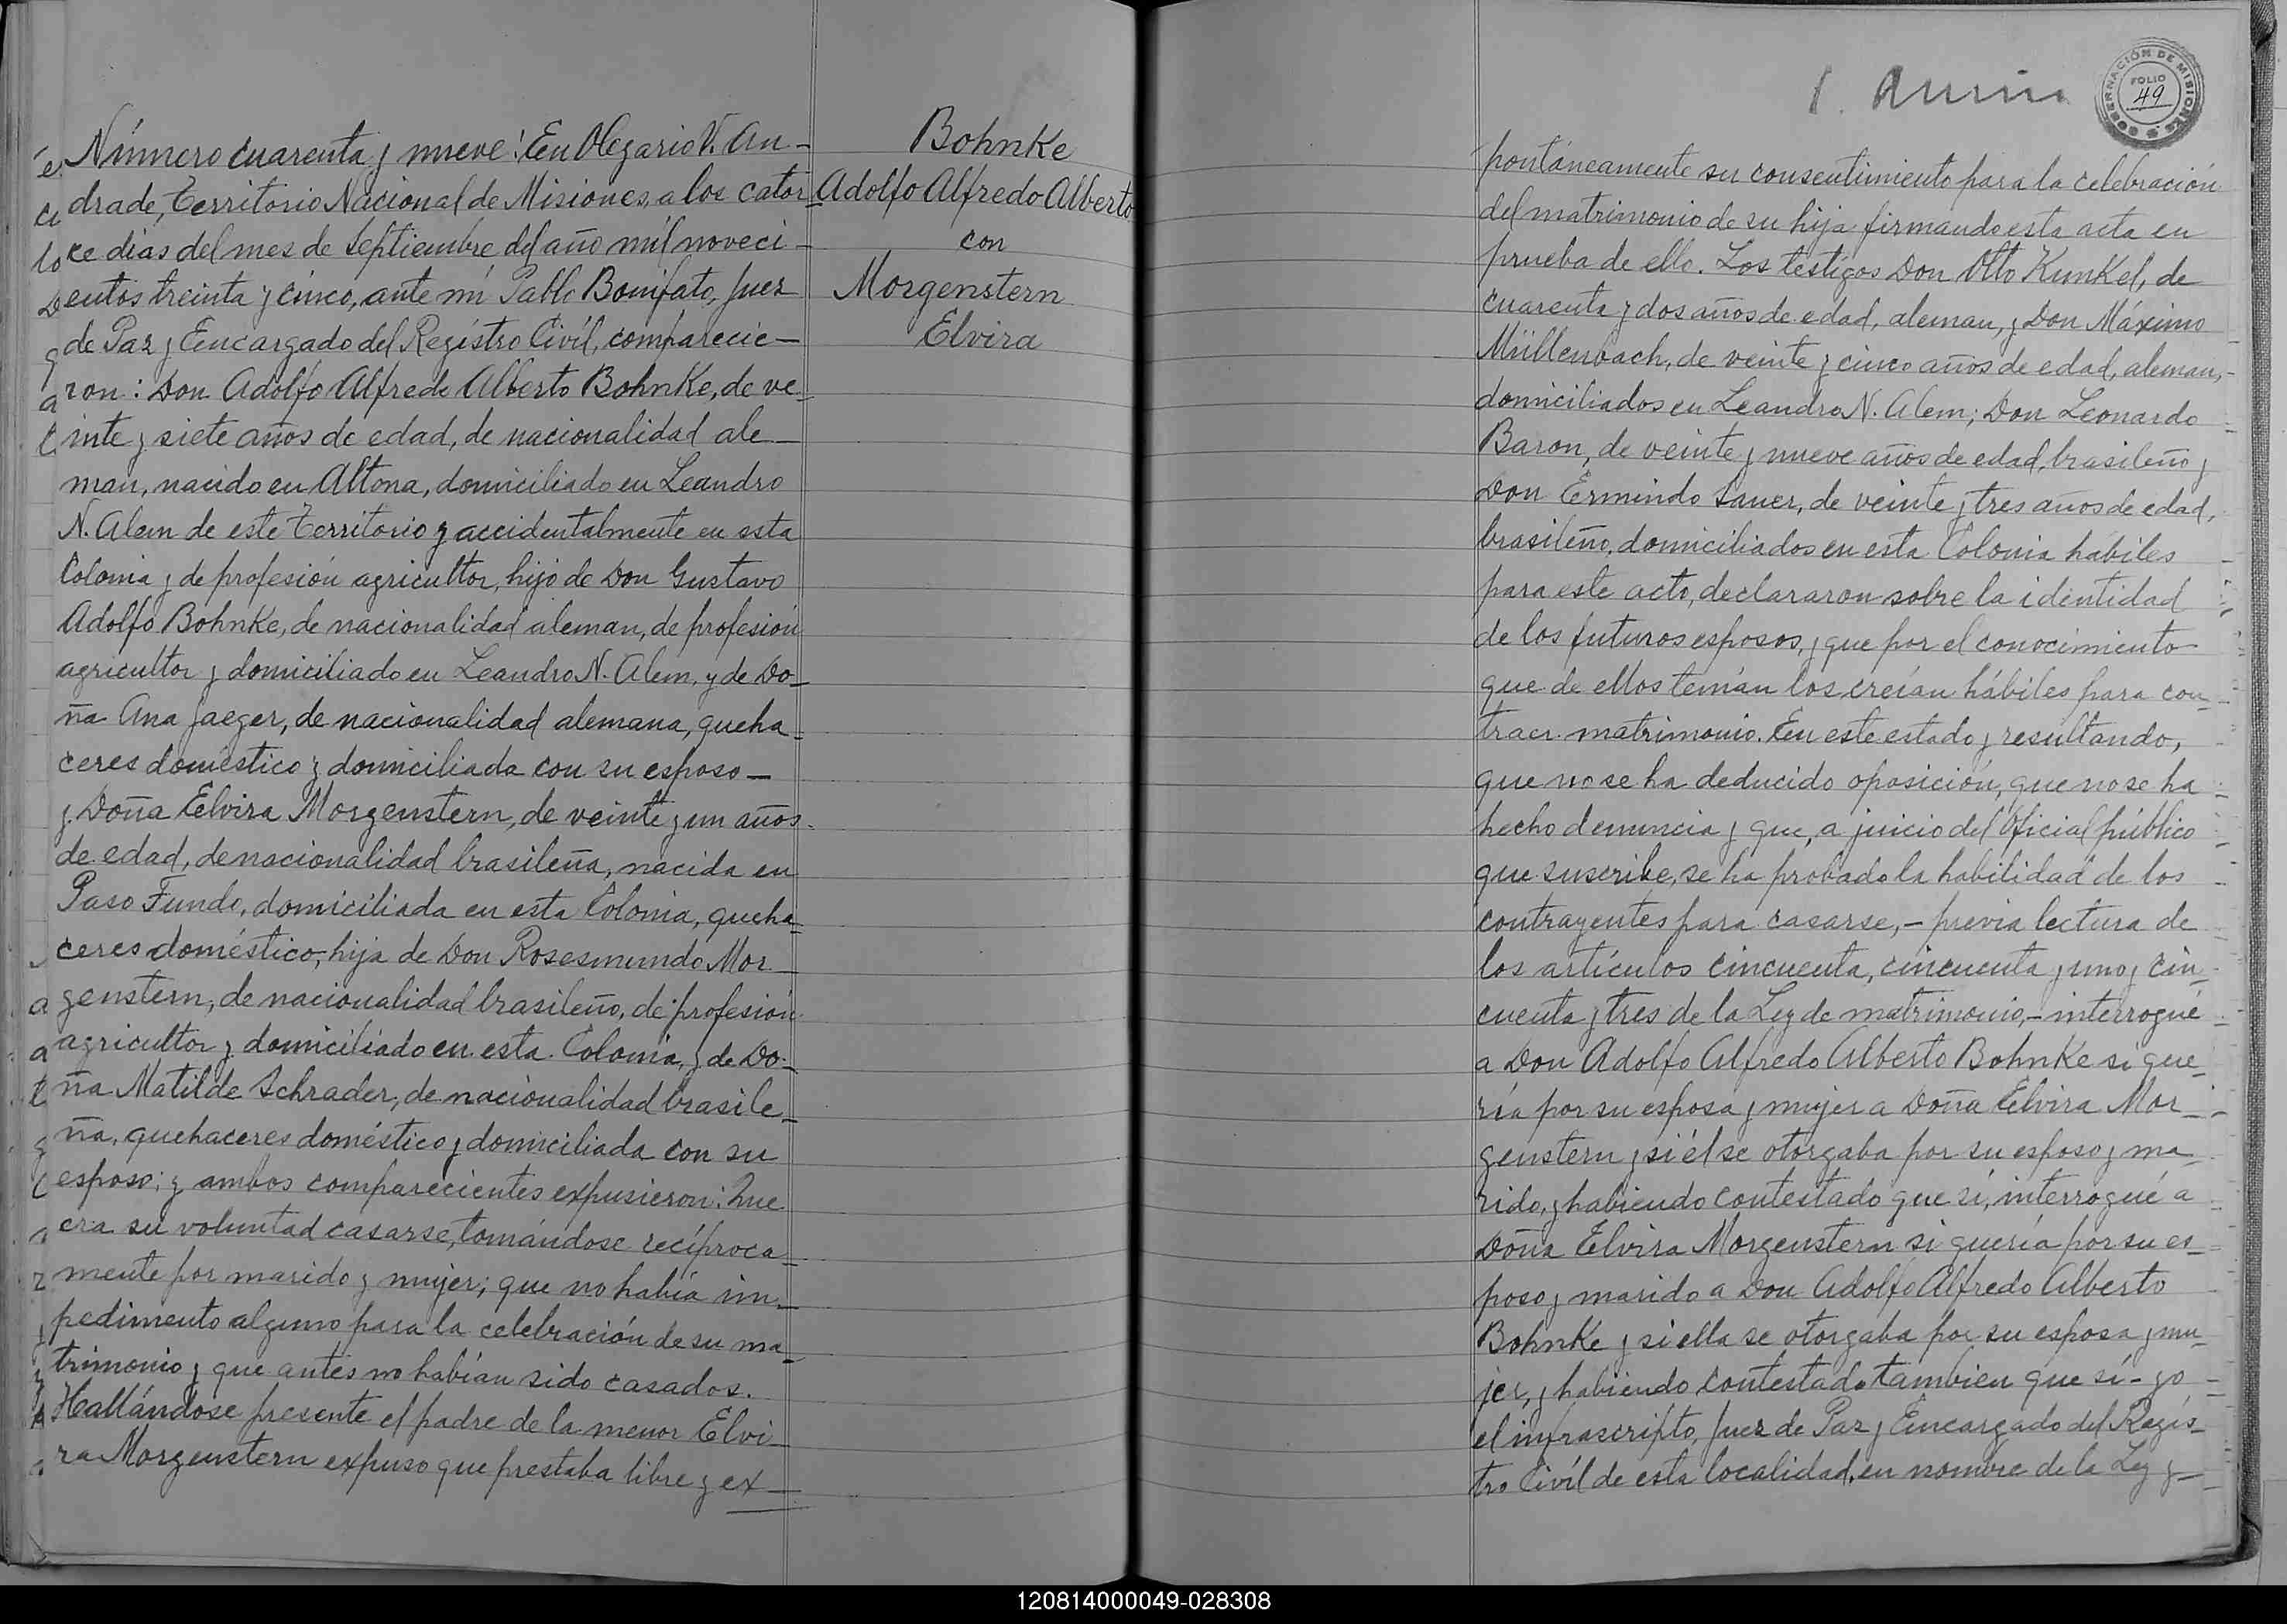 Número cuarenta y nueve: En Olegario V. An-
drade, Territorio Nacional de Misiones, a los cator-
ce dias del mes de Septiembre del año mil noveci-
entos treinta y cinco, ante mí Pablo Bonifato, Juez
de Paz y Encargado del Registro Civíl, comparecie-
ron: Don Adolfo Alfredo Alberto Bohnke, de ve-
inte y siete años de edad, de nacionalidad ale-
man, nacido en Altona, domiciliado en Leandro
N. Alem de este Territorio y accidentalmente en esta
Colonia y de profesión agricultor, hijo de Don Gustavo
Adolfo Bohnke, de nacionalidad aleman, de profesión
agricultor y domiciliado en Leandro N. Alem, y de Do-
ña Ana Jaeger, de nacionalidad alemana, queha-
ceres doméstico y domiciliada con su esposo-
y Doña Elvira Morgenstern, de veinte y un años
de edad, de nacionalidad brasileña, nacida en
Paso Fundo, domiciliada en esta Colonia, queha-
ceres doméstico, hija de Don Rosesmundo Mor-
genstern, de nacionalidad brasileño, de profesión
agricultor y domiciliado en esta Colonia, y de Do-
ña Matilde Schrader, de nacionalidad brasile-
ña, quehaceres doméstico y domiciliada con su
esposo; y ambos comparecientes expusieron: Que
era su voluntad casarse, tomándose recíproca-
mente por marido y mujer; que no había im-
pedimento alguno para la celebración de su ma-
trimonio y que antes no habían sido casados.
Hallándose presente el padre de la menor Elvi-
ra Morgenstern expuso que prestaba libre y ex-
Bohnke
Adolfo Alfredo Alberto
con
Morgenstern
Elvira
GOBERNACIÓN DE MISIONES
FOLIO
49
pontáneamente su consentimiento para la celebración
del matrimonio de su hija firmando esta acta en
prueba de ello. Los testigos Don Otto Kunkel, de
cuarenta y dos años de edad, aleman, y Don Máximo
Müllenbach, de veinte y cinco años de edad, aleman,-
domiciliados en Leandro N. Alem; Don Leonardo
Baron, de veinte y nueve años de edad, brasileño y
Don Ermindo Sauer, de veinte y tres años de edad,
brasileño, domiciliados en esta Colonia hábiles
para este acto, declararon sobre la identidad
de los futuros esposos, y que por el conocimiento
que de ellos tenían los creían hábiles para con-
traer matrimonio. En este estado y resultando,
que no se ha deducido oposición, que no se ha
hecho denuncia y que, a juicio del Oficial público
que suscribe, se ha probado la habilidad de los
contrayentes para casarse,- previa lectura de
los artículos cincuenta, cincuenta y uno y cin-
cuenta y tres de la Ley de matrimonio,- interrogué
a Don Adolfo Alfredo Alberto Bohnke si que-
ría por su esposa y mujer a Doña Elvira Mor-
genstern y si él se otorgaba por su esposo y ma-
rido, y habiendo contestado que sí, interrogué a
Doña Elvira Morgenstern si quería por su es-
poso y marido a Don Adolfo Alfredo Alberto
Bohnke y si ella se otorgaba por su esposa y mu-
jer, y habiendo contestado tambien que sí- yo
el infrascripto, Juez de Paz y Encargado del Regis-
tro Civíl de esta localidad, en nombre de la Ley y-
120814000049-028308